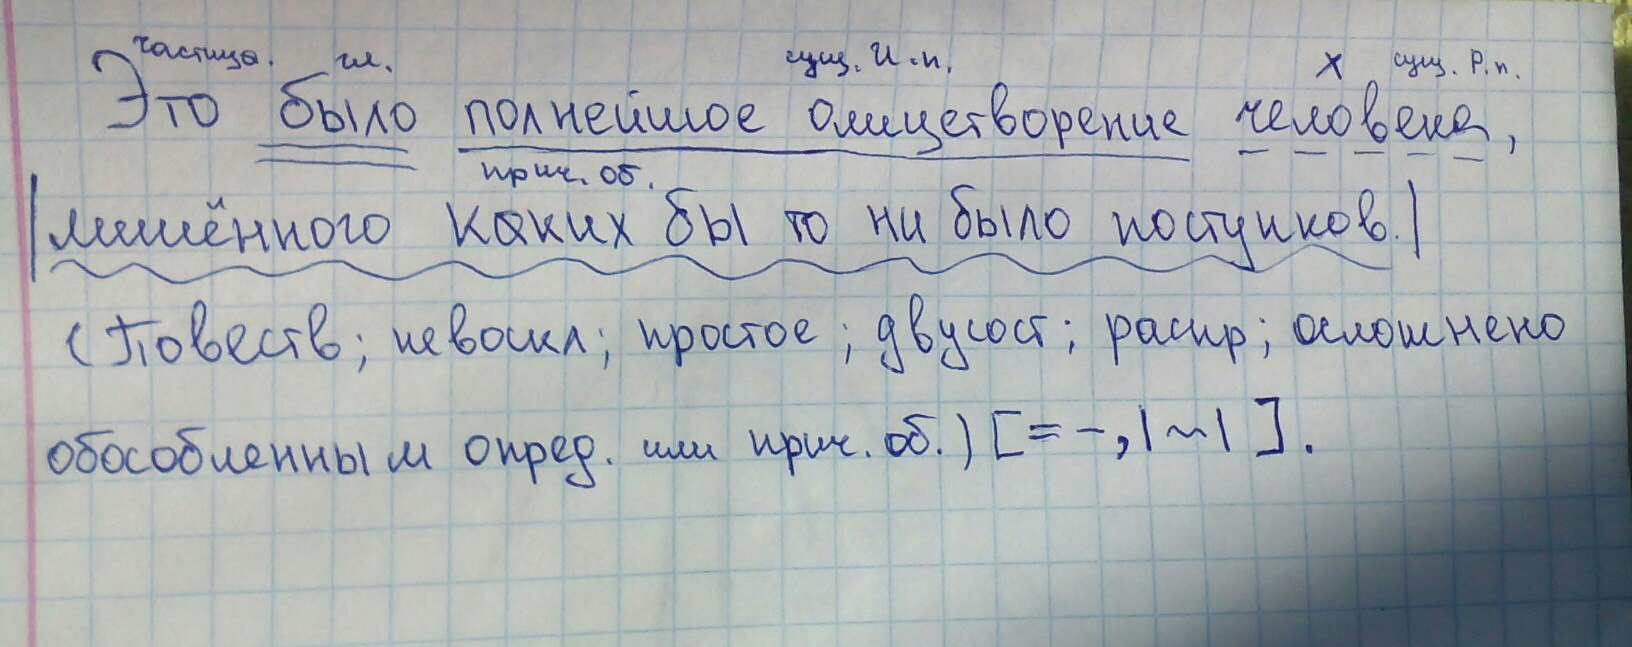 частица. гл. сущ. И.п. х сущ. Р.п.
Это было полнейшое олицетворение человека,
прич. об.
|лишённого каких бы то ни было поступков.|
(Повеств; невоскл; простое; двусост; распр; осложнено
обособленным опред. или прич. об.) [= -, |~| ].